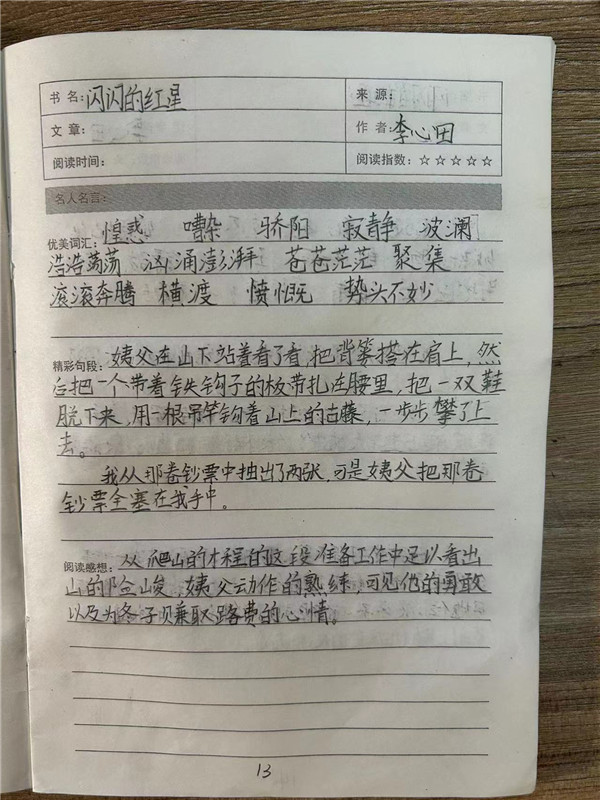 书 名: 闪闪的红星 来 源:
文 章: 作 者: 李心田
阅读时间: 阅读指数: ☆☆☆☆☆
名人名言:
优美词汇: 惶惑 嘈杂 骄阳 寂静 波澜
浩浩荡荡 汹涌澎湃 苍苍茫茫 聚集
滚滚奔腾 横渡 愤慨 势头不妙
精彩句段: 姨父在山下站着看了看,把背篓搭在肩上,然
后把一个带着铁钩子的板带扎在腰里,把一双鞋
脱下来,用一根吊竿钩着山上的古藤,一步步攀了上
去。
我从那卷钞票中抽出了两张,可是姨父把那卷
钞票全塞在我手中。
阅读感想: 从爬山的木程的这段准备工作中足以看出
山的险峻,姨父动作的熟练,可见他的勇敢
以及为冬子赚取路费的心情。
13